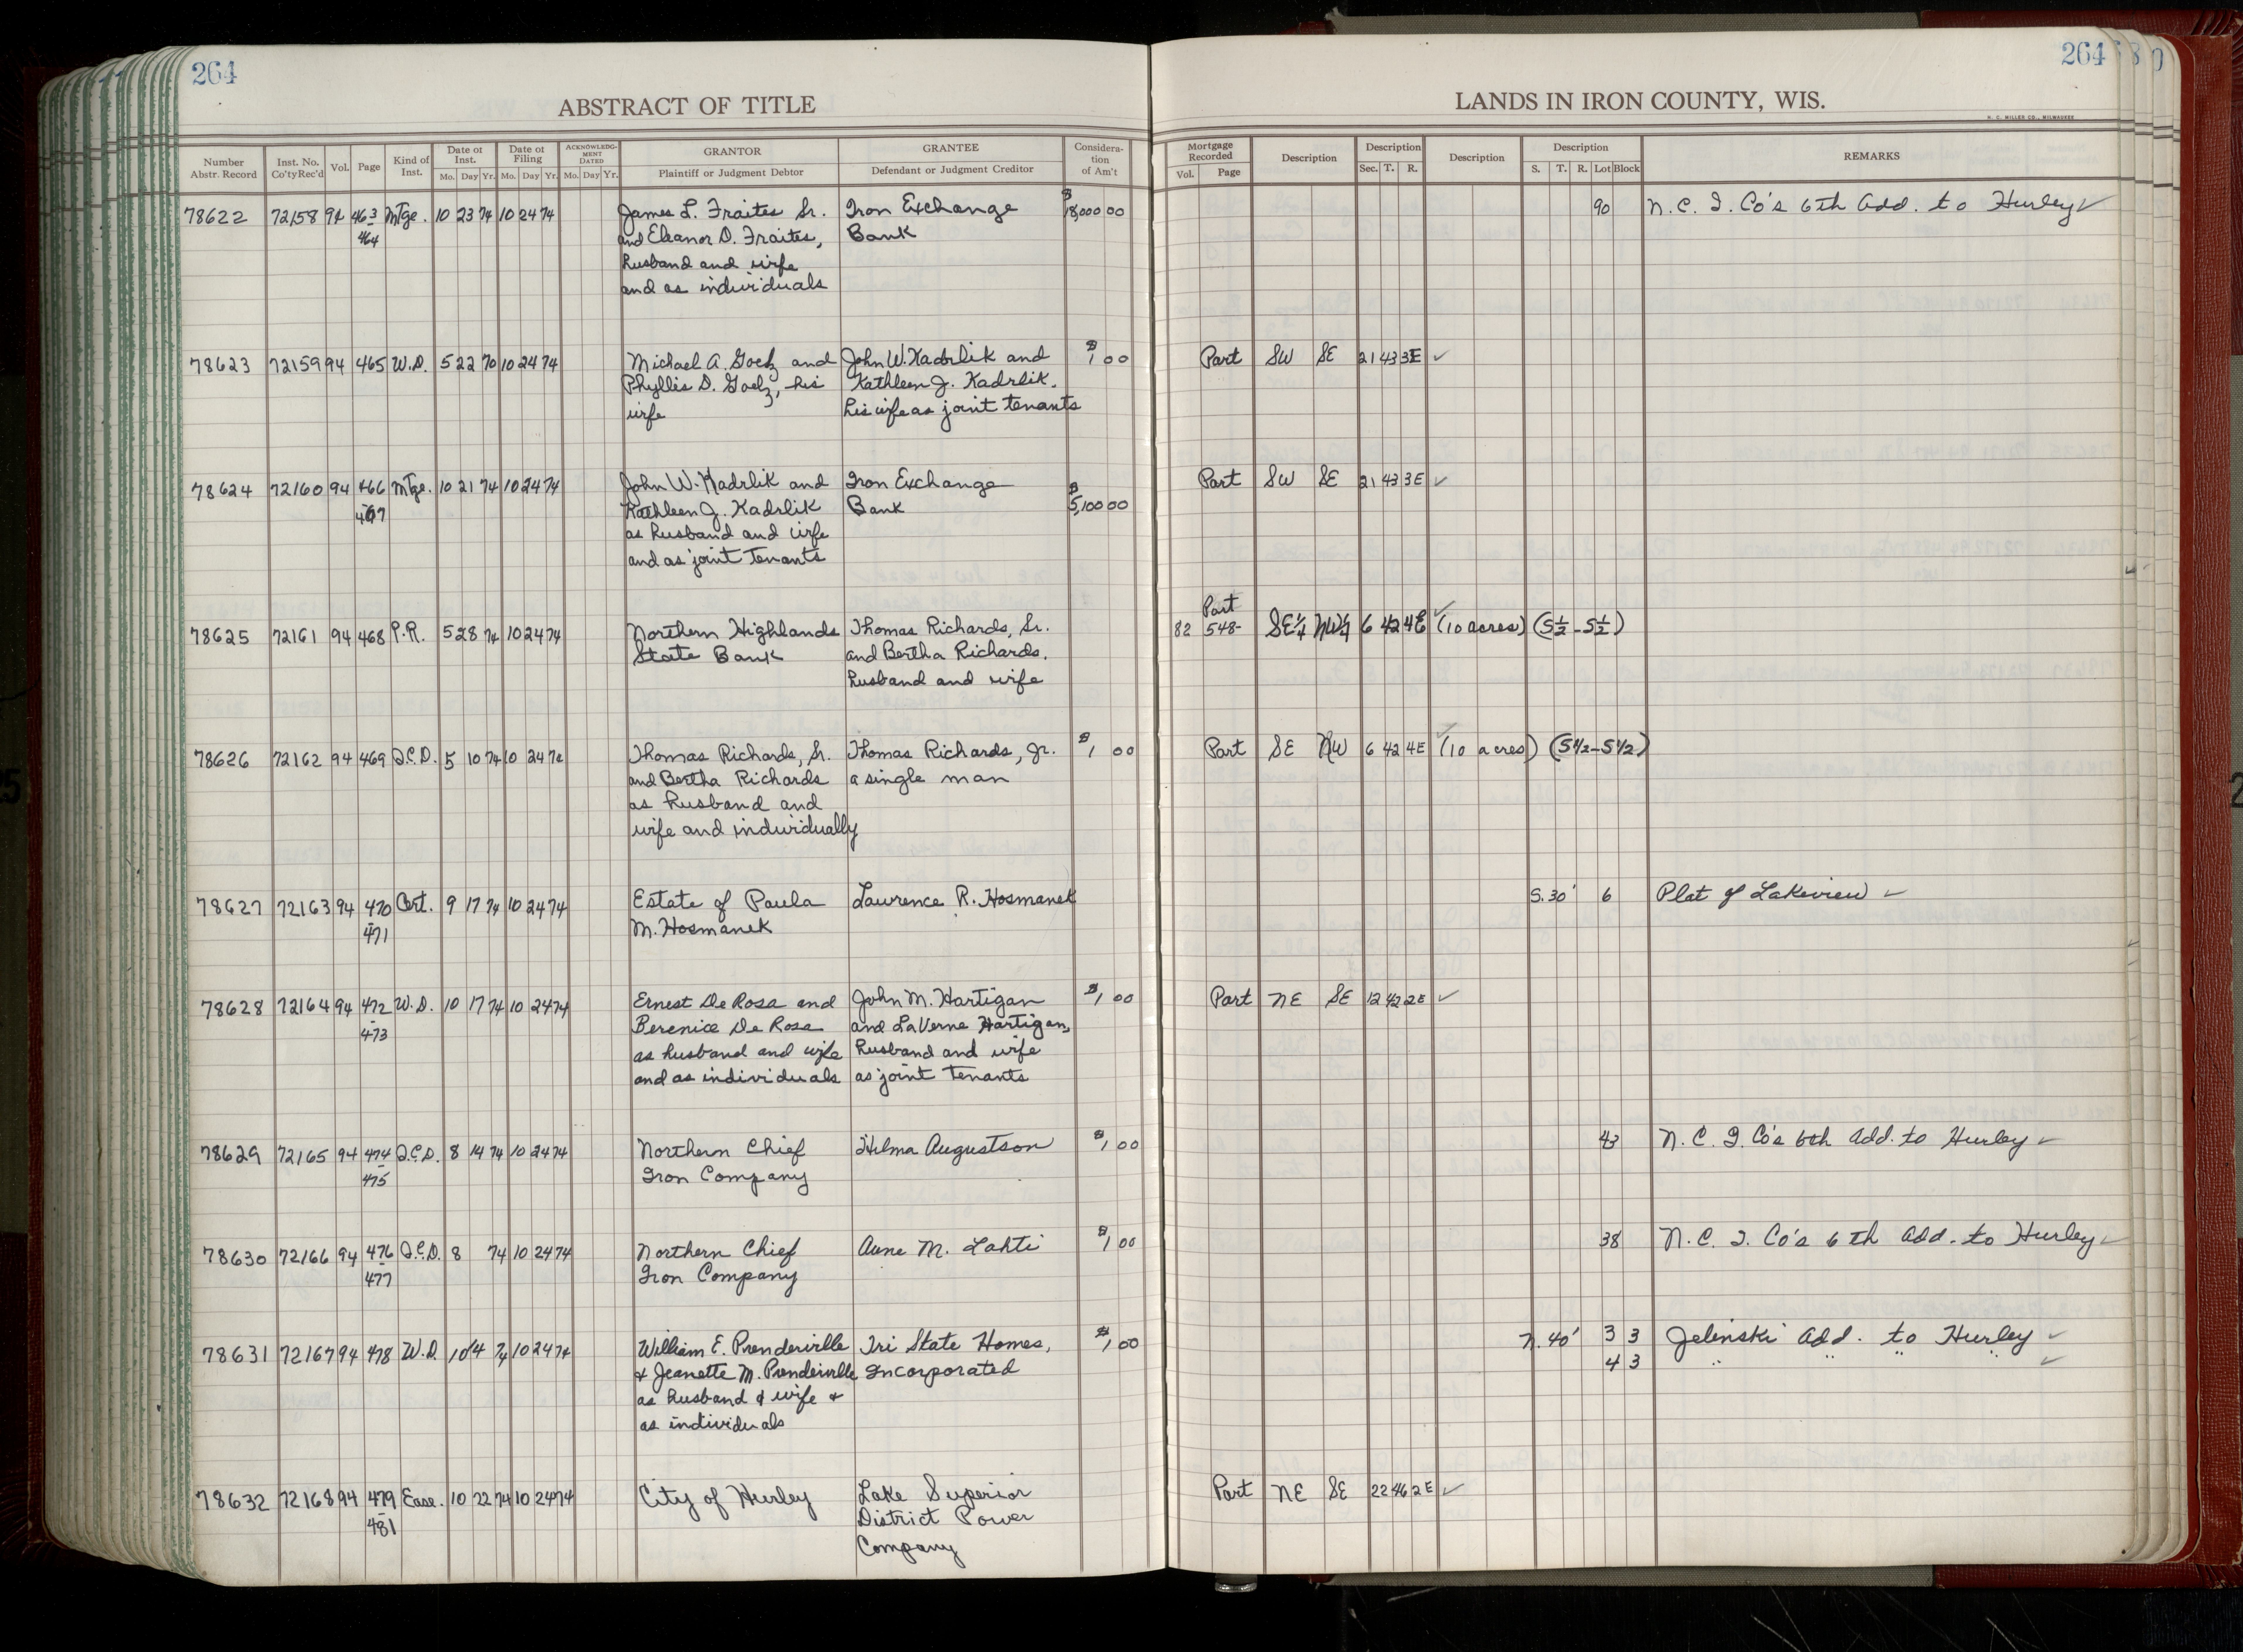 264
264
ABSTRACT OF TITLE
LANDS IN IRON COUNTY, WIS.
H. C. MILLER CO., MILWAUKEE
Number Abstr. Record | Inst. No. Co'ty Rec'd | Vol. | Page | Kind of Inst. | Date of Inst. Mo. Day Yr. | Date of Filing Mo. Day Yr. | ACKNOWLEDGMENT DATED Mo. Day Yr. | GRANTOR Plaintiff or Judgment Debtor | GRANTEE Defendant or Judgment Creditor | Consideration of Am't | Mortgage Recorded Vol. Page | Description | Description Sec. T. R. | Description | Description S. T. R. Lot Block | REMARKS
78622 72158 94 463 Mtge. 10 23 74 10 24 74 James L. Fraites Sr. Iron Exchange $18,000 00 90 N. C. I. Co's 6th Add. to Hurley ✓
-464 and Eleanor D. Fraites, Bank
husband and wife
and as individuals
78623 72159 94 465 W.D. 5 22 70 10 24 74 Michael A. Goelz and John W. Kadrlik and $1 00 Part SW SE 21 43 3E ✓
Phyllis D. Goelz, his Kathleen J. Kadrlik,
wife his wife as joint tenants
78624 72160 94 466 Mtge. 10 21 74 10 24 74 John W. Kadrlik and Iron Exchange Part SW SE 21 43 3E ✓
-467 Kathleen J. Kadrlik Bank $5,100 00
as husband and wife
and as joint tenants
Part
78625 72161 94 468 P.R. 5 28 74 10 24 74 Northern Highlands Thomas Richards, Sr. 82 548- SE¼ NW¼ 6 42 4E ✓ (10 acres) (5½-5½)
State Bank and Bertha Richards,
husband and wife
78626 72162 94 469 Q.C.D. 5 10 74 10 24 74 Thomas Richards, Sr. Thomas Richards, Jr. $1 00 Part SE NW 6 42 4E ✓ (10 acres) (5½-5½)
and Bertha Richards a single man
as husband and
wife and individually
78627 72163 94 470 Cert. 9 17 74 10 24 74 Estate of Paula Lawrence R. Hosmanek S. 30' 6 Plat of Lakeview ✓
-471 M. Hosmanek
78628 72164 94 472 W.D. 10 17 74 10 24 74 Ernest De Rosa and John M. Hartigan $1 00 Part NE SE 12 42 2E ✓
-473 Berenice De Rosa and LaVerne Hartigan,
as husband and wife husband and wife
and as individuals as joint tenants
78629 72165 94 474 Q.C.D. 8 14 74 10 24 74 Northern Chief Hilma Augustson $1 00 43 N. C. I. Co's 6th Add. to Hurley ✓
-475 Iron Company
78630 72166 94 476 Q.C.D. 8 74 10 24 74 Northern Chief Aune M. Lahti $1 00 38 N. C. I. Co's 6th Add. to Hurley ✓
-477 Iron Company
78631 72167 94 478 W.D. 10 4 74 10 24 74 William E. Prenderville Tri State Homes, $1 00 N. 40' 3 3 Jelinski Add. to Hurley ✓
& Jeanette M. Prenderville Incorporated 4 3 " " " " ✓
as husband & wife &
as individuals
78632 72168 94 479 Ease. 10 22 74 10 24 74 City of Hurley Lake Superior Part NE SE 22 46 2E ✓
-481 District Power
Company